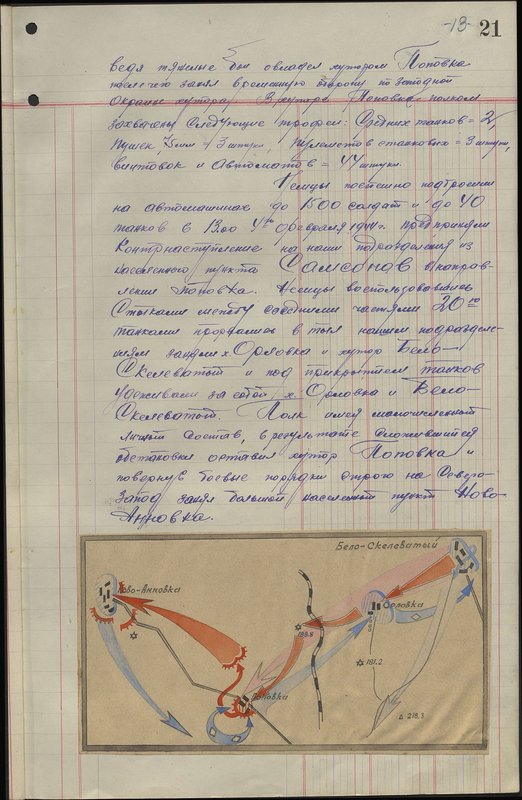 -13- 21
ведя тяжелые бои овладел хутором Поповка
после чего занял временную оборону по западной
окраине хутора. В хуторе Поповка полком
захвачены следующие трофеи: Средних танков = 2,
Пушек 75мм = 3 штуки, Пулеметов станковых = 3 штуки,
винтовок и Автоматов = 44 штуки.
Немцы поспешно подбросили
на автомашинах до 1500 солдат и до 40
танков в 13.00 4го февраля 1944г. предприняли
Контрнаступление на наши подразделения из
населенного пункта Самсонов в направ-
лении Поповка. Немцы воспользовавшись
Стыками между соседними частями 20ю
танками прорвались в тыл нашим подразделе-
ниям заняли х Орловка и хутор Бело-
Скелеватый и под прикрытием танков
удерживали за собой х. Орловка и Бело-
Скелеватый. Полк имея малочисленный
личный состав, в результате сложившейся
обстановки оставил хутор Поповка и
повернув боевые порядки строго на Северо-
Запад занял большой населенный пункт Ново-
Анновка.
Бело-Скелеватый
Ново-Анновка
Орловка
188.8
181.2
Поповка
218.3